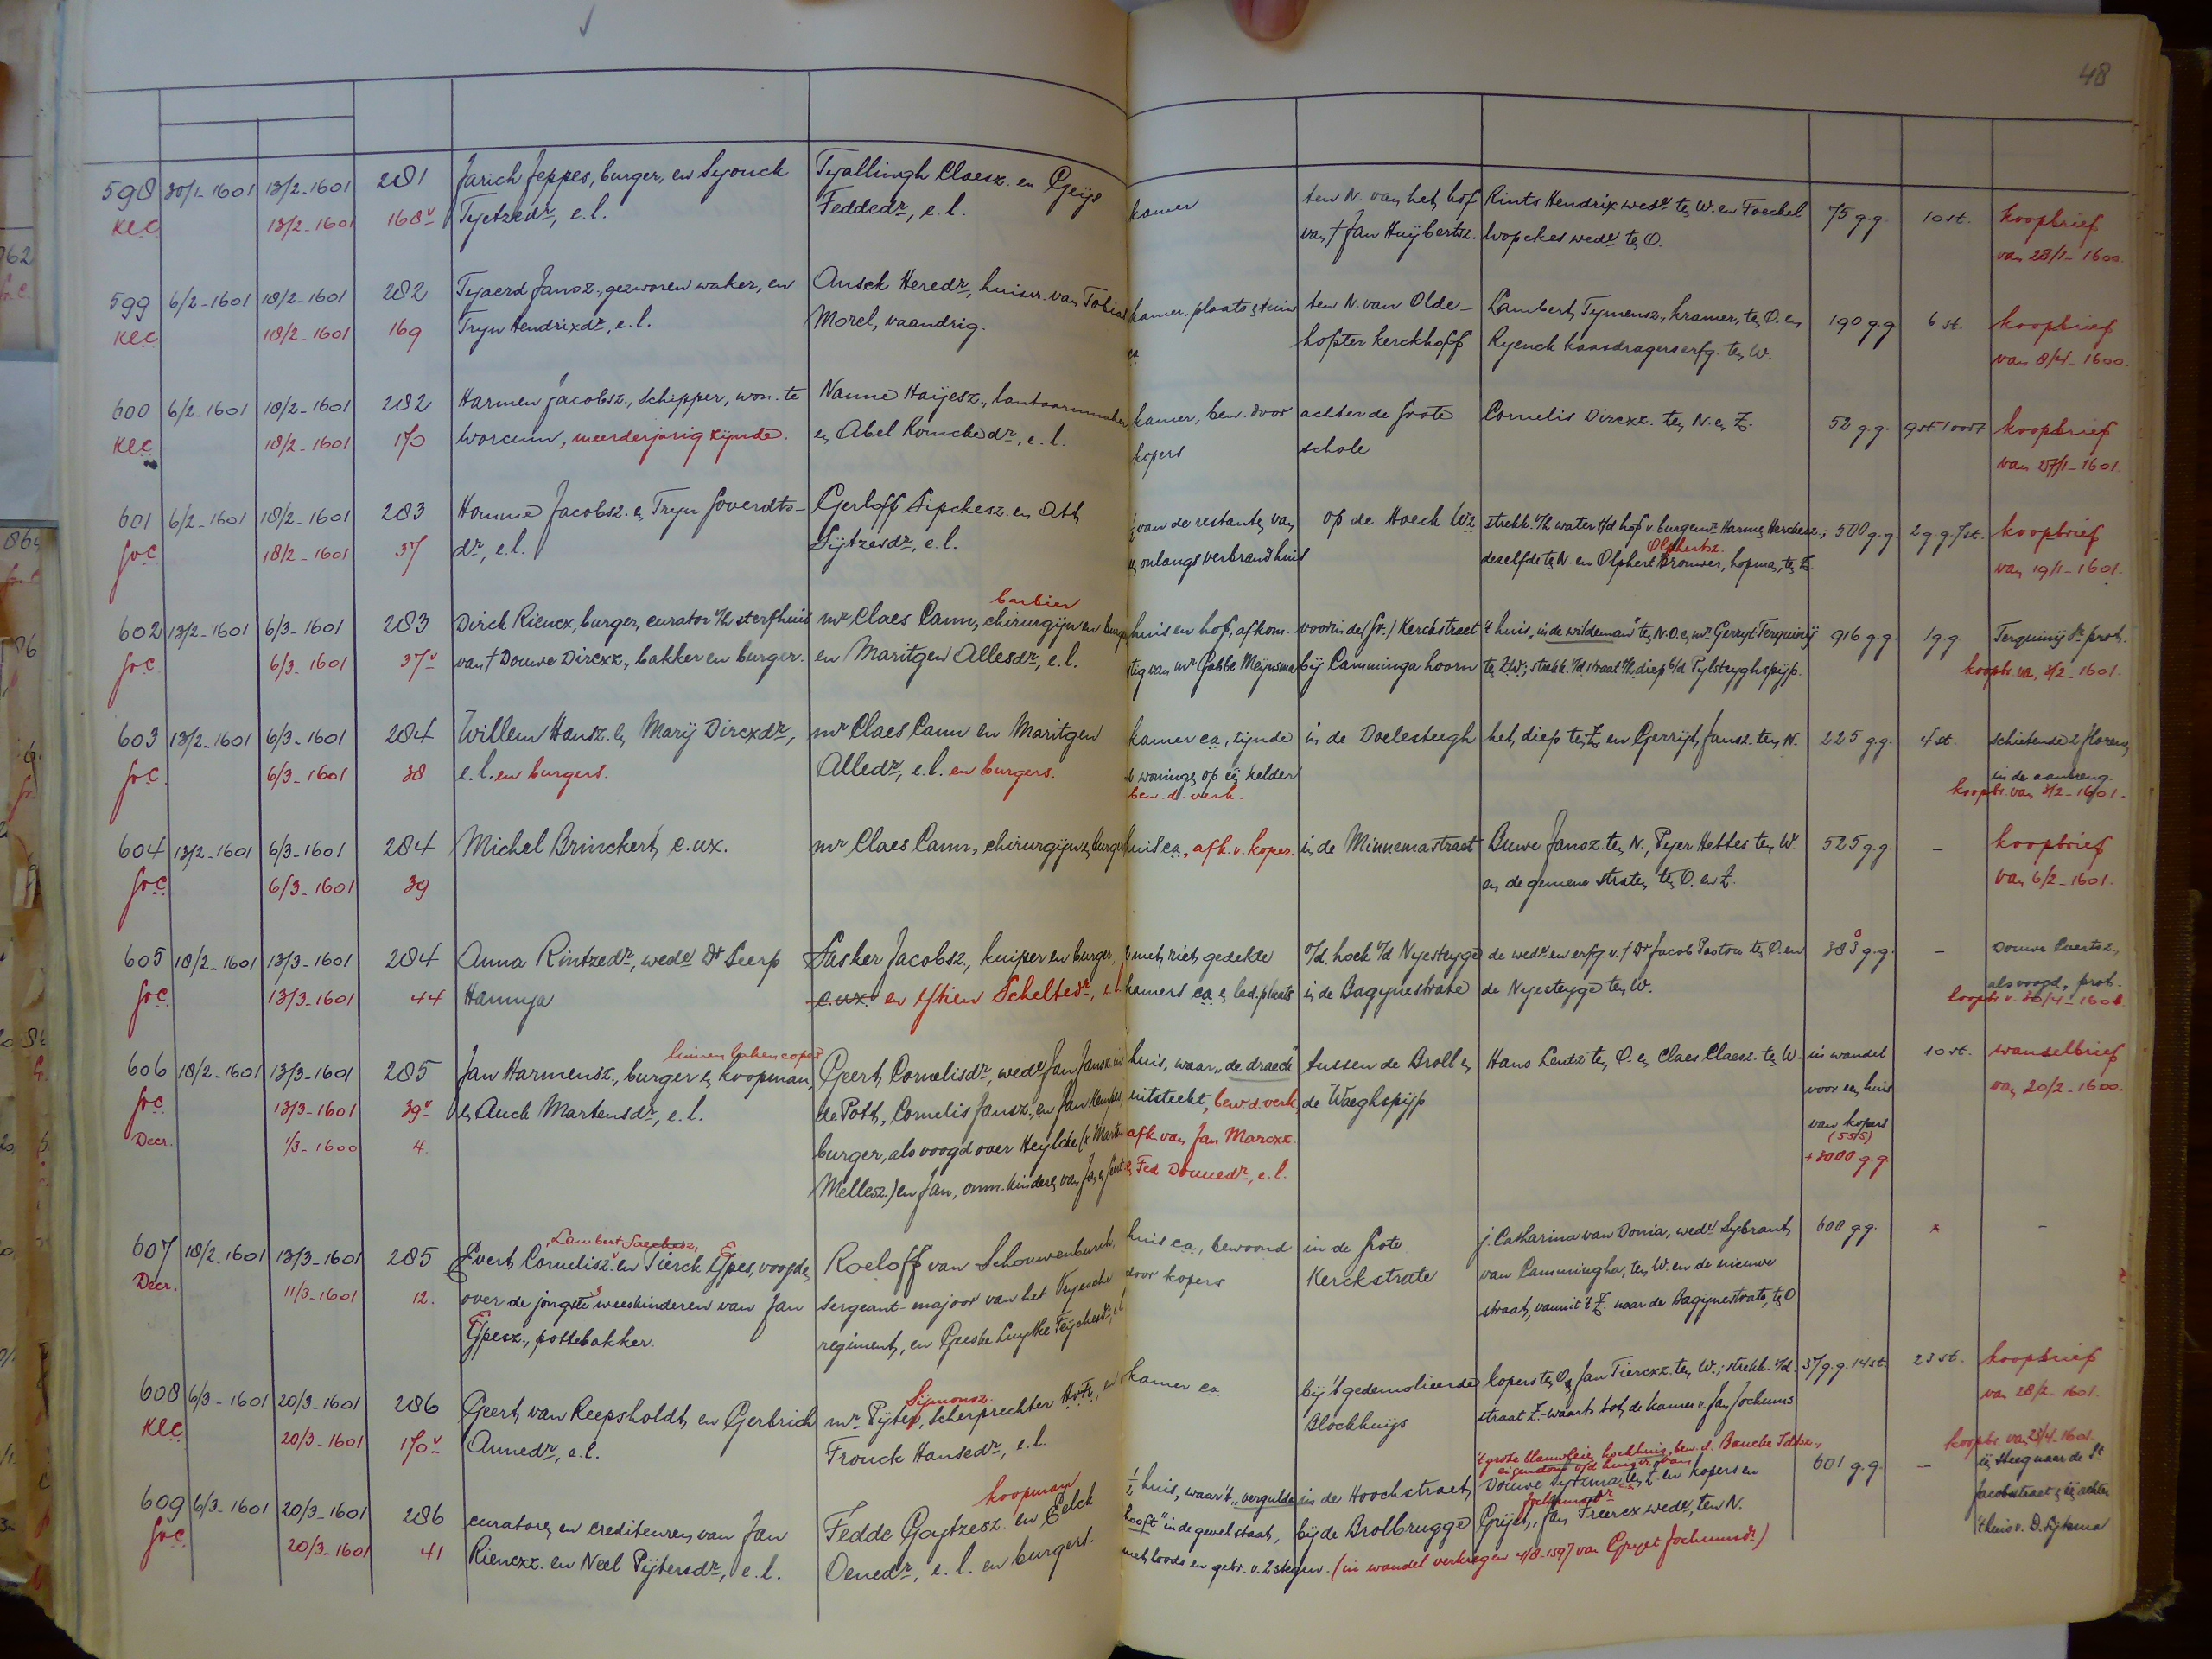 48
598 30/1-1601 13/2-1601 281 Jarich Jeppes, burger, en Syouck Tyallingh Claesz. en Geijs kamer ten N. van het hof Rints Hendrix wedᵉ tᵉⁿ W. en Foeckel 75 g.g. 10 st. koopbrief
KLC 13/2-1601 168ᵛ Tyetzedʳ, e.l. Feddedʳ, e.l. van † Jan Huijbertsz. Wopckes wedᵉ tᵉⁿ O. van 28/1-1600.
599 6/2-1601 18/2-1601 282 Tyaerd Jansz., gezworen waker, en Ansck Heredʳ, huisvr. van Tobias kamer, plaats & tuin ten N. van Olde- Lambert Tymensz., kramer, tᵉⁿ O. en 190 g.g 6 st. koopbrief
KLC 18/2-1601 169 Tryn Hendrixdʳ, e.l. Morel, vaandrig. ca hofster kerckhoff Ryenck kaasdragers erfg. tᵉⁿ W. van 8/4-1600
600 6/2-1601 18/2-1601 282 Harmen Jacobsz., schipper, won. te Nanne Haijesz., lantaarnmaker kamer, bew. door achter de Grote Cornelis Dircxz. tᵉⁿ N. en Z. 52 g.g. 9 st. 1 oort koopbrief
KLC 18/2-1601 170 Worcum, meerderjarig zijnde. en Abel Romckedʳ, e.l. kopers schole van 27/1-1601.
601 6/2-1601 18/2-1601 283 Homme Jacobsz. en Tryn Goverdts- Gerloff Sipckesz. en Ath ½ van de restanten van op de Hoeck Wz. strekk. v/h water t/d hof v. burgemʳ Harmen Herckesz.; 500 g.g. 2 g.g 7 st. koopbrief
GrC 18/2-1601 37 dʳ, e.l. Sijtzesdʳ, e.l. een onlangs verbrand huis deselfde tᵉⁿ N. en Olphert Olphertsz. Brouwer, hopman, tᵉⁿ Z. van 19/1-1601.
602 13/2-1601 6/3-1601 283 Dirck Riencx, burger, curator v/h sterfhuis mʳ Claes Cann, barbier chirurgijn en burger huis en hof, afkom- voorin de (Gr.) Kerckstraet 't huis "in de wildeman" tᵉⁿ N.O. en mʳ Gerryt Terquinij 916 g.g. 1 g.g. Terquinij Dʳ prot.
GrC 6/3-1601 37ᵛ van † Douwe Dircxz., bakker en burger. en Maritgen Allesdʳ, e.l. stig van mʳ Gabbe Meijnsma bij Camminga hoorn tᵉⁿ Z.W.; strekk. v/d straat t/h diep b/d Pylsteyghspijp. koopbr. van 8/2-1601.
603 13/2-1601 6/3-1601 284 Willem Hansz. en Marij Dircxdʳ, mʳ Claes Cann en Maritgen kamer ca, zijnde in de Doelesteegh het diep tᵉⁿ Z. en Gerrijt Jansz. tᵉⁿ N. 225 g.g. 4 st. schietende 2 floreen
GrC. 6/3-1601 38 e.l. en burgers. Alledʳ, e.l. en burgers. 2 woningen op een kelder in de aanbreng.
bew. d. verk. koopbr. van 8/2-1601.
604 13/2-1601 6/3-1601 284 Michel Brinckert c.ux. mʳ Claes Cann, chirurgijn en burger huis ca, afk. v. koper. in de Minnemastraet Auwe Jansz. tᵉⁿ N., Peyer Hettes tᵉⁿ W. 525 g.g. - koopbrief
GrC 6/3-1601 39 en de gemene straten tᵉⁿ O. en Z. van 6/2-1601.
605 18/2-1601 13/3-1601 284 Anna Rintzedʳ, wedᵉ Dʳ Seerp Sasker Jacobsz., kuiper en burger, 2 met riet gedekte o/d. hoek v/d Nyesteyge de wedᵉ en erfg. v. † Dʳ Jacob Pastoor tᵉⁿ O. en 383 g.g. - Douwe Evertsz.,
GrC 13/3-1601 44 Hannya c.ux. en Ytien Scheltedʳ, e.l. kamers ca en led. plaats in de Bagynestrate de Nyesteyge tᵉⁿ W. als voogd, prot.
koopbr. v. 30/4-1601.
606 18/2-1601 13/3-1601 285 Jan Harmensz., burger & linnen lakencoper koopman, Geert Cornelisdʳ, wedᵉ Jan Jansz. in huis, waar „de draeck" tussen de Broll en Hans Lentz tᵉⁿ O. en Claes Claesz. tᵉⁿ W. in wandel 10 st. wandelbrief
GrC 13/3-1601 39ᵛ en Auck Martensdʳ, e.l. de Pott, Cornelis Jansz., en Jan Kempes, uitsteekt, bew. d. verk. de Waeghspijp voor een huis van 20/2-1600.
Decr. 1/3-1600 4. burger, als voogd over Heylcke (x Marten afk. van Jan Marcxz. van kopers
Mellesz.) en Jan, onm. kinderen van Jan & Geert en Fed Douwedʳ, e.l. (555)
+ 3000 g.g.
607 18/2-1601 13/3-1601 285 Evert Cornelisz. Lambert Saeckesz, en Tierck Epes, voogden Roeloff van Schouwenburch, huis ca, bewoond in de Grote j. Catharina van Donia, wedᵉ Sybrant 600 g.g. x -
Decr. 11/3-1601 12. over de jongste weeskinderen van Jan sergeant-majoor van het Vryesche door kopers Kerckstrate van Cammingha, tᵉⁿ W. en de nieuwe
Epesz., pottebakker. regiment, en Geeske Luytke Feijckesdʳ, e.l. straat, van uit 't Z. naar de Bagynestrate, tᵉⁿ O
608 6/3-1601 20/3-1601 286 Geert van Reepsholdt en Gerbrich mʳ Pijter Sijmonsz., scherprechter HvFr, en kamer ca bij 't gedemolieerde kopers tᵉⁿ O. en Jan Tiercxz. tᵉⁿ W.; strekk. v/d 37 g.g. 14 st. 23 st. koopbrief
KLC 20/3-1601 170ᵛ Annedʳ, e.l. Frouck Hansedʳ, e.l. Blockhuijs straat Z.-waarts tot de kamer v. Jan Jochums van 28/2-1601.
609 6/3-1601 20/3-1601 286 curatoren en crediteuren van Jan Fedde Goytzesz. koopman en Eelck ½ huis, waar 't „vergulde in de Hoochstraet 't grote blauwe leien hoekhuis, bew. d. Baucke Idtsz., 601 g.g. - koopbr. van 25/4-1601.
GrC 20/3-1601 41 Riencxz. en Neel Pijtersdʳ, e.l. Oenedʳ, e.l. en burgers. hooft" in de gevel staat, bij de Brolbrugge eigendom v/d huisvr. van Douwe Sytzma tᵉⁿ Z. en kopers en een steeg naar de Sᵗ
met loods en gebr. v. 2 stegen. (in wandel verkregen 4/8-1597 van Gryet Jochumsdʳ) Gryet Jochumsdʳ, Jan Freercx wedᵉ, ten N. Jacobstraet & een achter
't huis v. D. Sytsma